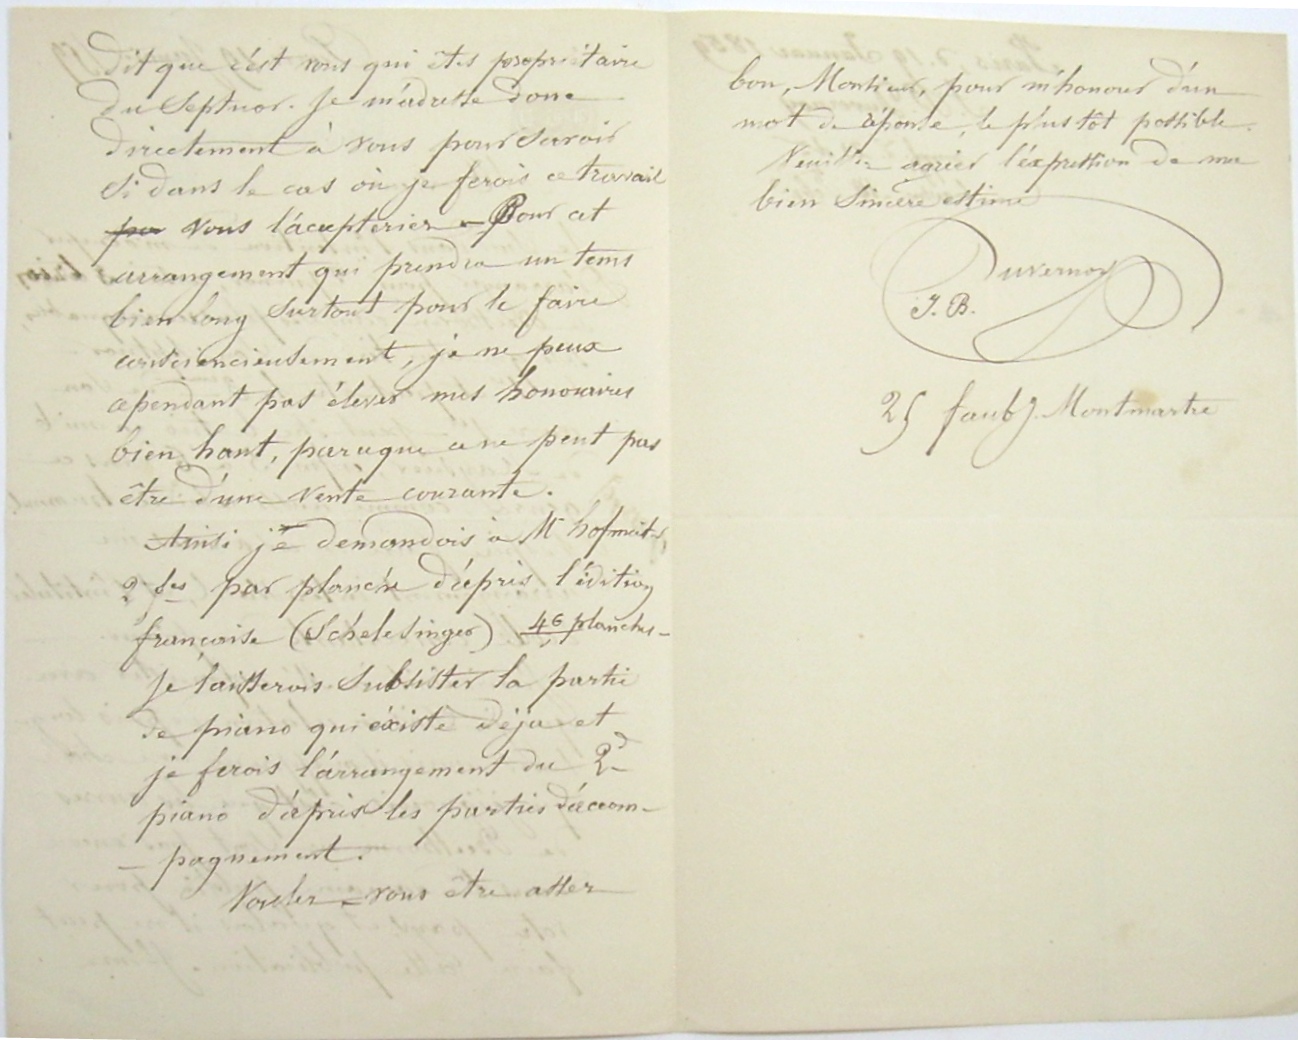 dit que c'est vous qui êtes propriétaire
du Septuor. Je m'adresse donc
directement à vous pour savoir
si dans le cas où je ferois ce travail
vous l'accepteriez – Pour cet
arrangement qui prendra un tems
bien long surtout pour le faire
consciencieusement, je ne peux
cependant pas élever mes honoraires
bien haut, parceque ce ne peut pas
être d'une vente courante.
Ainsi je demandois à Mr hofmeister
2 fcs par planche d'après l'édition
françoise (Schelesinger) 46 planches –
Je laisserois subsister la partie
de piano qui éxiste déja et
je ferois l'arrangement du 2d
piano d'après les parties d'accom-
- pagnement.
Voulez-vous être assez
bon, Monsieur, pour m'honorer d'un
mot de réponse, le plus tôt possible.
Veuillez agréer l'expression de ma
bien sincère estime
Duvernoy
J. B.
25 faubg. Montmartre